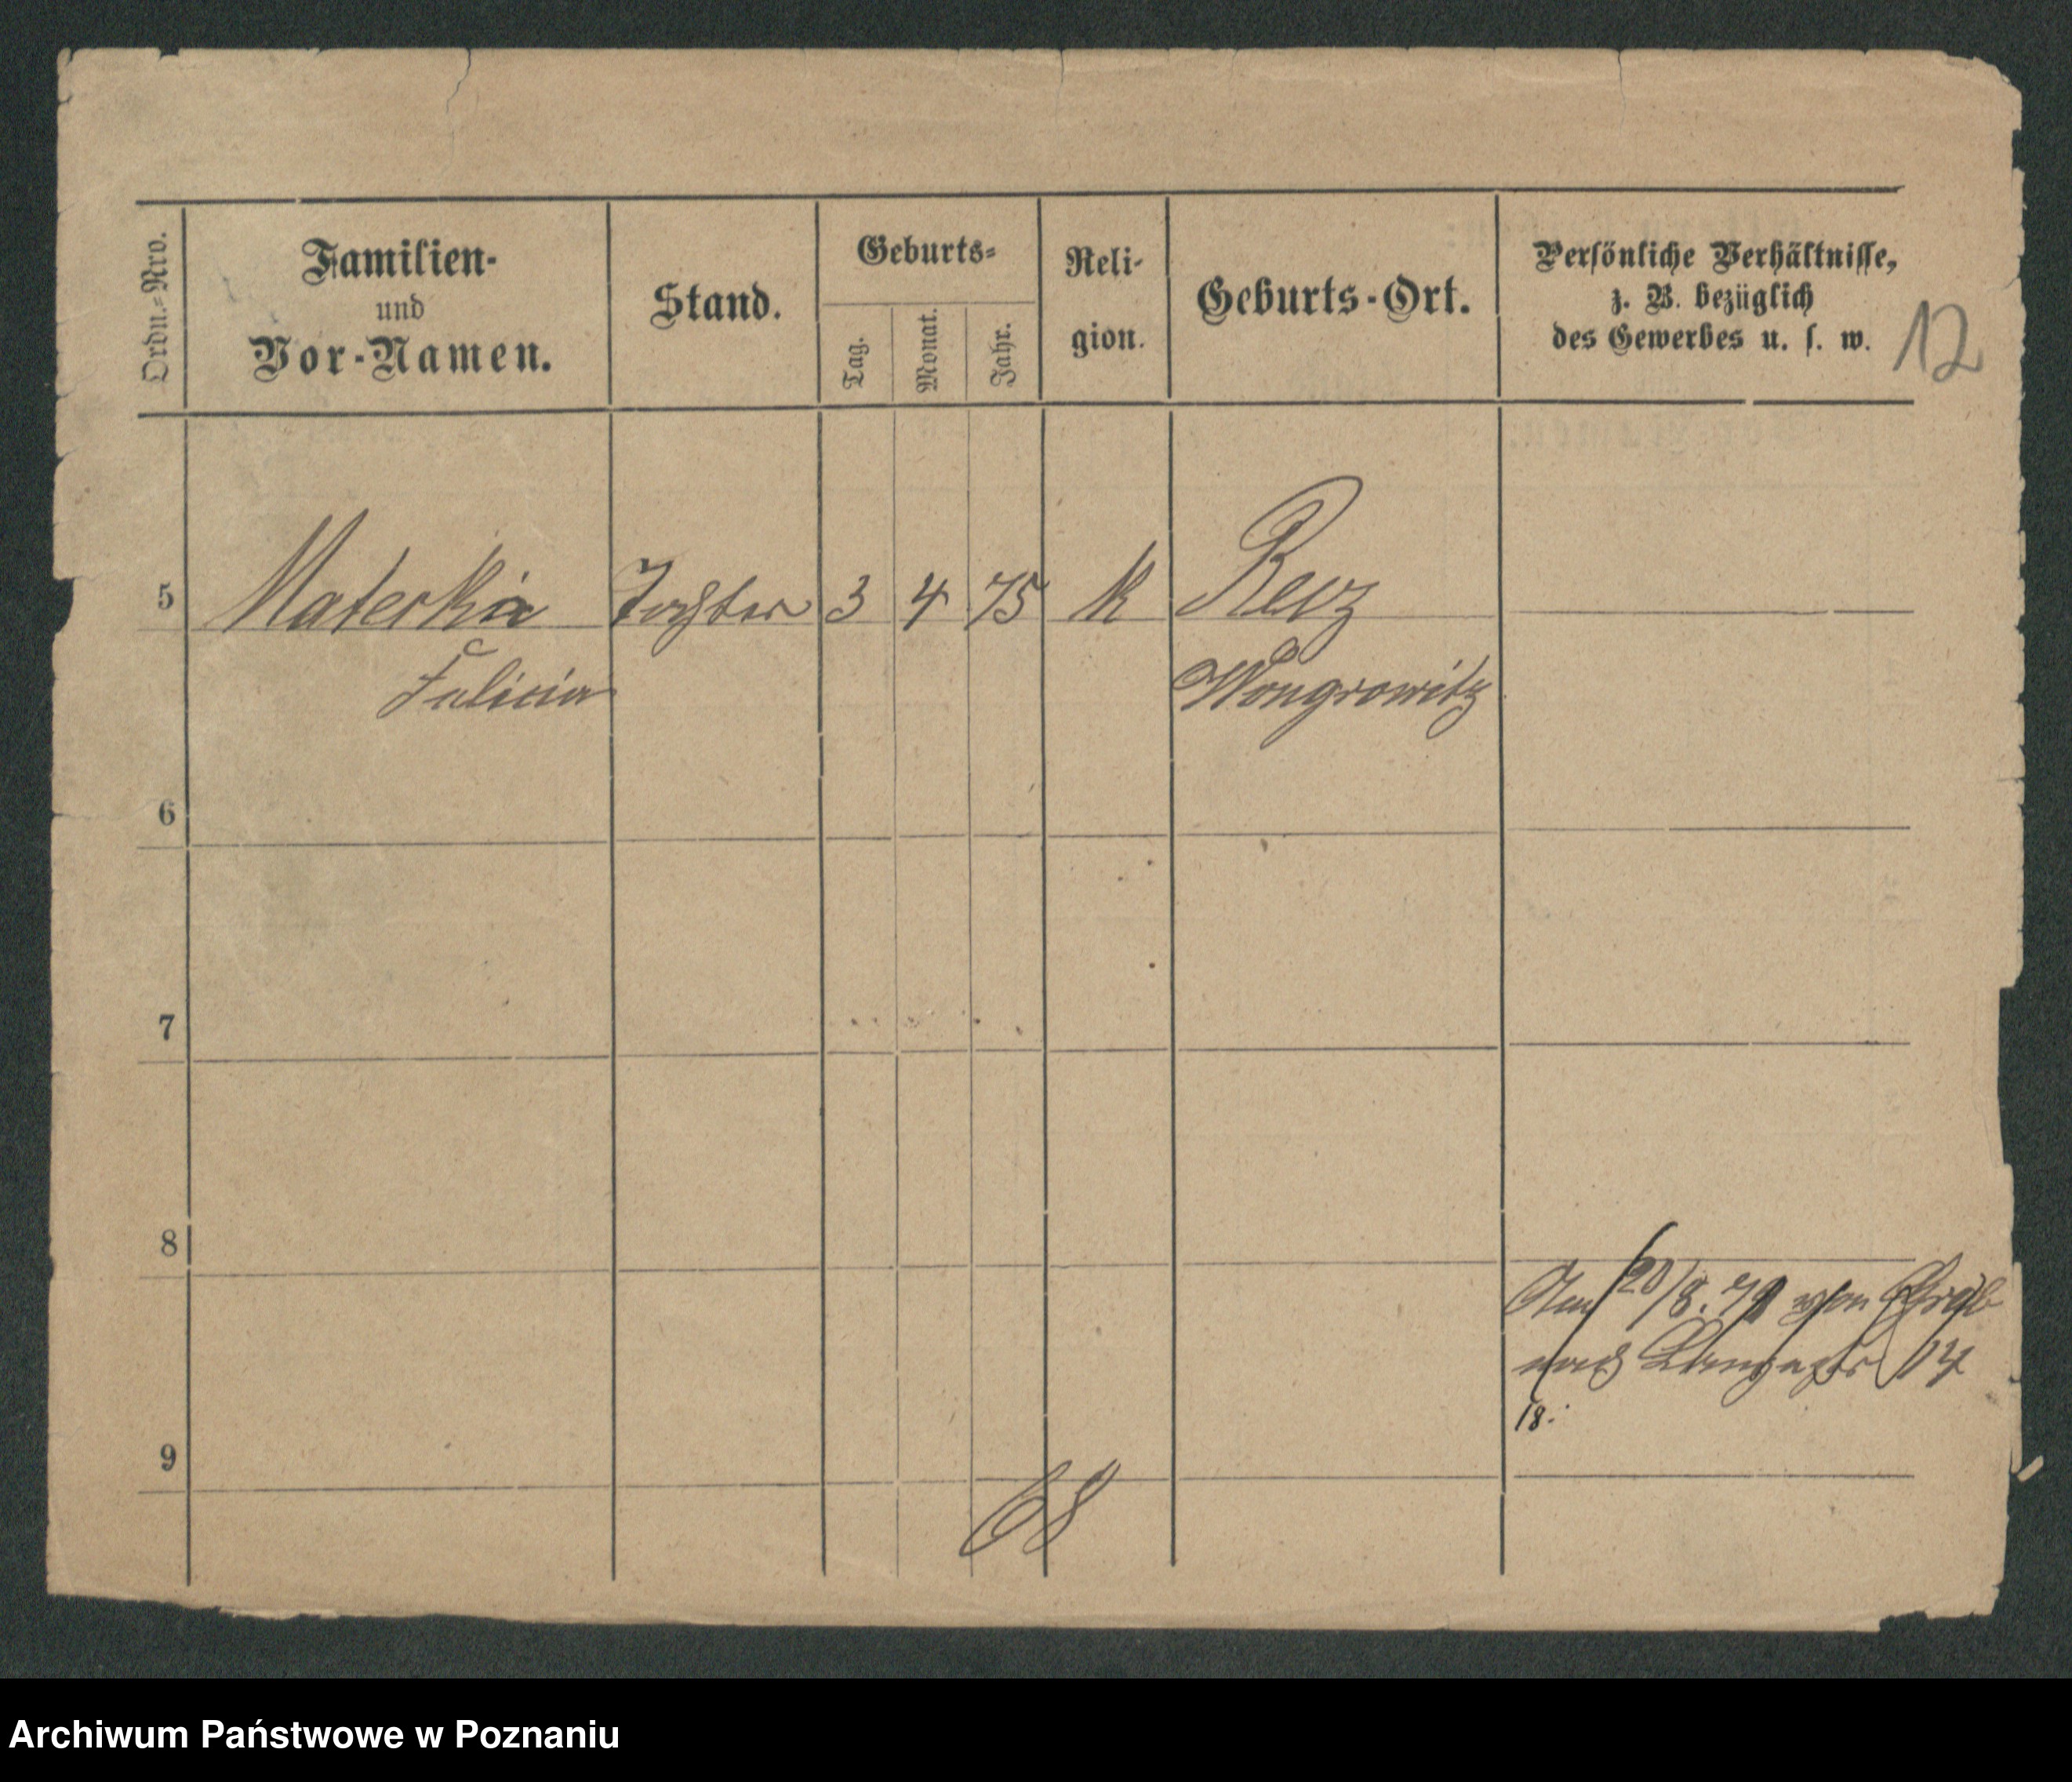 Ordn.-Nro.
Familien-
und
Vor-Namen.
Stand.
Geburts-
Tag.
Monat.
Jahr.
Reli-
gion.
Geburts-Ort.
Persönliche Verhältnisse,
z. B. bezüglich
des Gewerbes u. s. w.
12
5 Materka Tochter 3 4 75 k
Felicia Wongrowitz
6
7
8
20/8. von
nach 14
18.
9
68
Archiwum Państwowe w Poznaniu